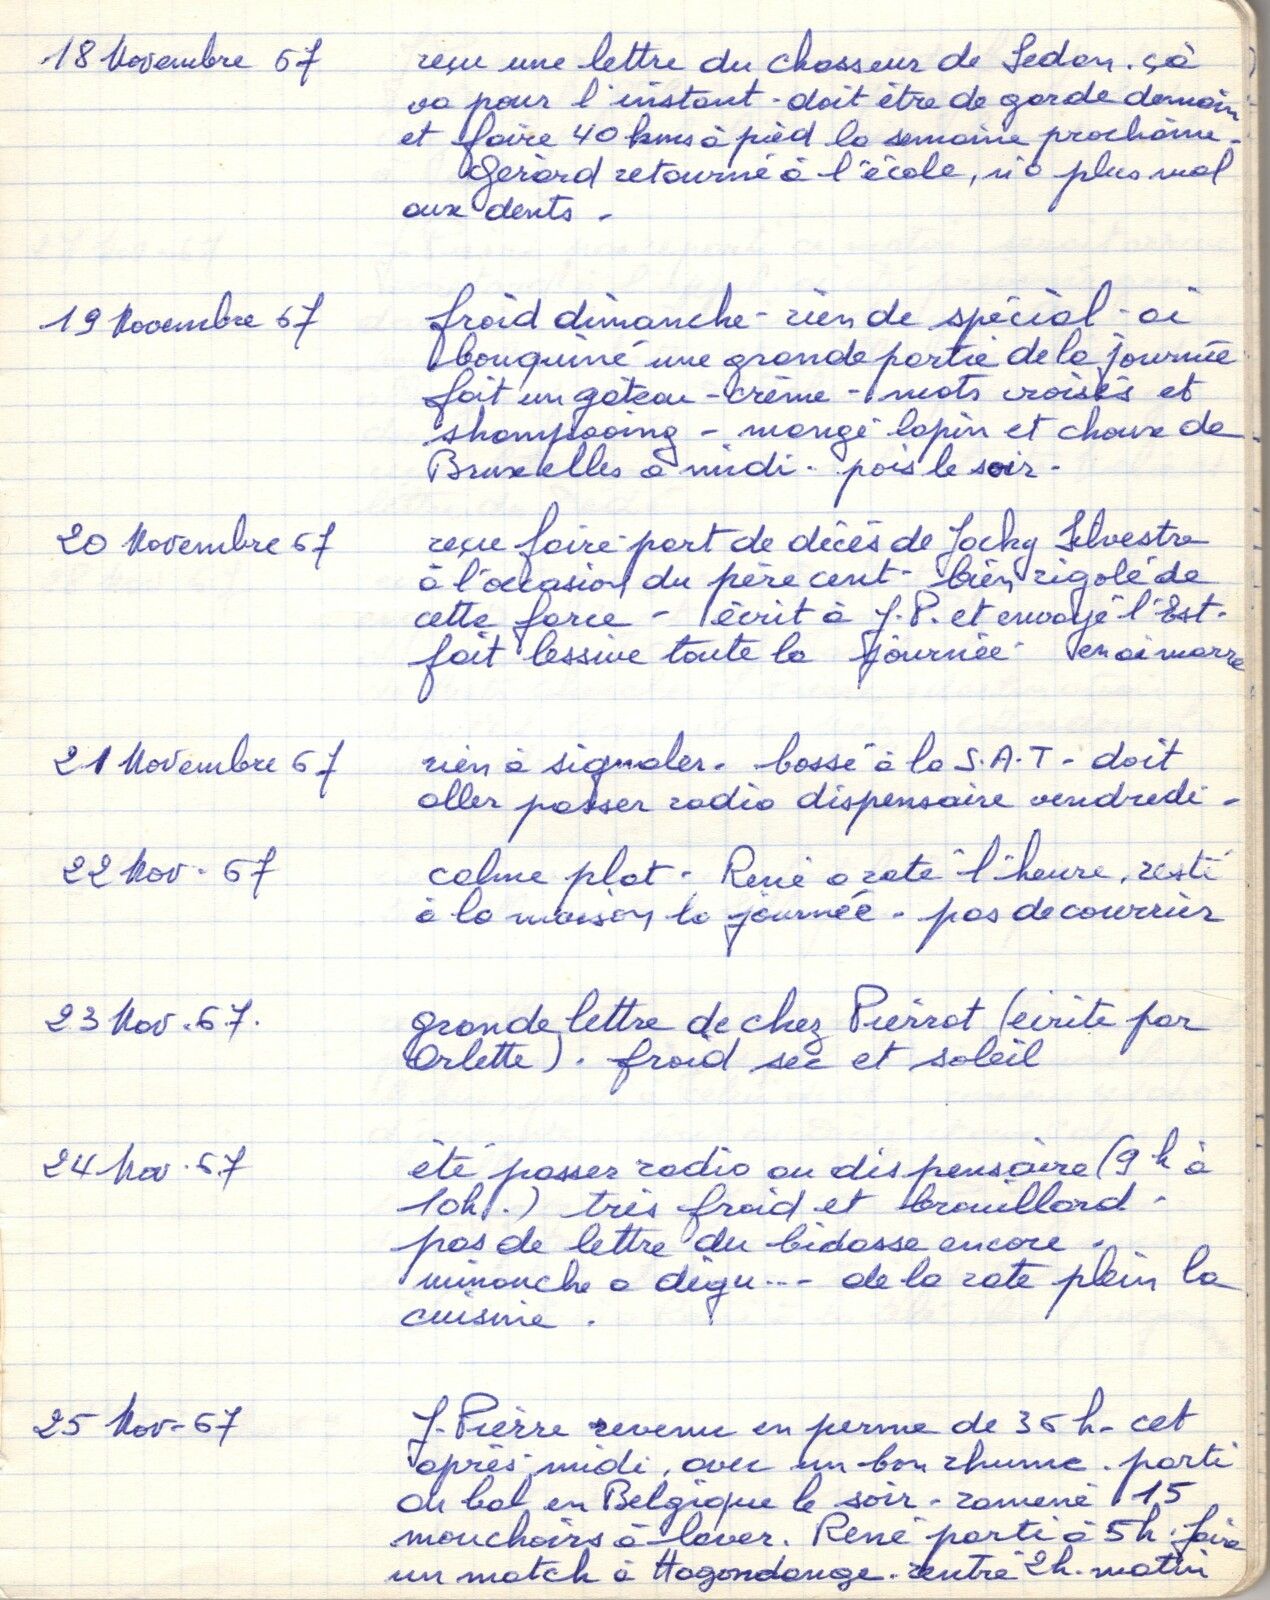 18 Novembre 67 reçu une lettre du chasseur de Sedan. çà
va pour l'instant - doit être de garde demain
et faire 40 kms à pied la semaine prochaine -
Gérard retourné à l'école, n'a plus mal
aux dents -
19 Novembre 67 froid dimanche - rien de spécial - ai
bouquiné une grande partie de la journée
fait un gâteau - crème - mots croisés et
shampooing - mangé lapin et choux de
Bruxelles à midi - pois le soir -
20 Novembre 67 reçu faire-part de décès de Jacky Selvestre
à l'occasion du père cent - bien rigolé de
cette farce - écrit à J.P. et envoyé l'Est -
fait lessive toute la journée - en ai marre
21 Novembre 67 rien à signaler - bossé à la S.A.T - doit
aller passer radio dispensaire vendredi -
22 Nov - 67 calme plat - René a raté l'heure, resté
à la maison la journée - pas de courrier
23 Nov. 67. grande lettre de chez Pierrot (écrite par
Arlette). froid sec et soleil
24 Nov. 67 été passer radio au dispensaire (9 h à
10h.) très froid et brouillard -
pas de lettre du bidasse encore -
minouche a dégu... de la rate plein la
cuisine .
25 Nov - 67 J. Pierre revenu en perme de 36 h - cet
après midi, avec un bon rhume - parti
au bal en Belgique le soir - ramené 15
mouchoirs à laver. René parti à 5h. faire
un match à Hagondange. rentré 2h. matin